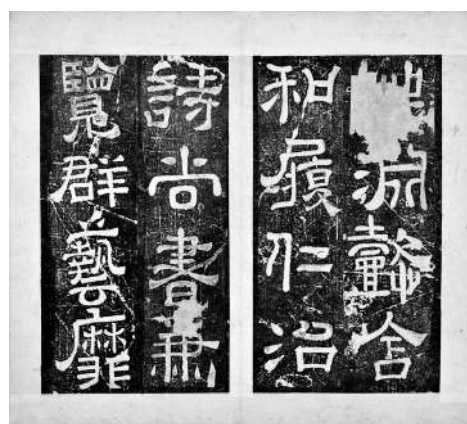 淵懿含
和履仁治
詩尚書兼
覽群藝靡